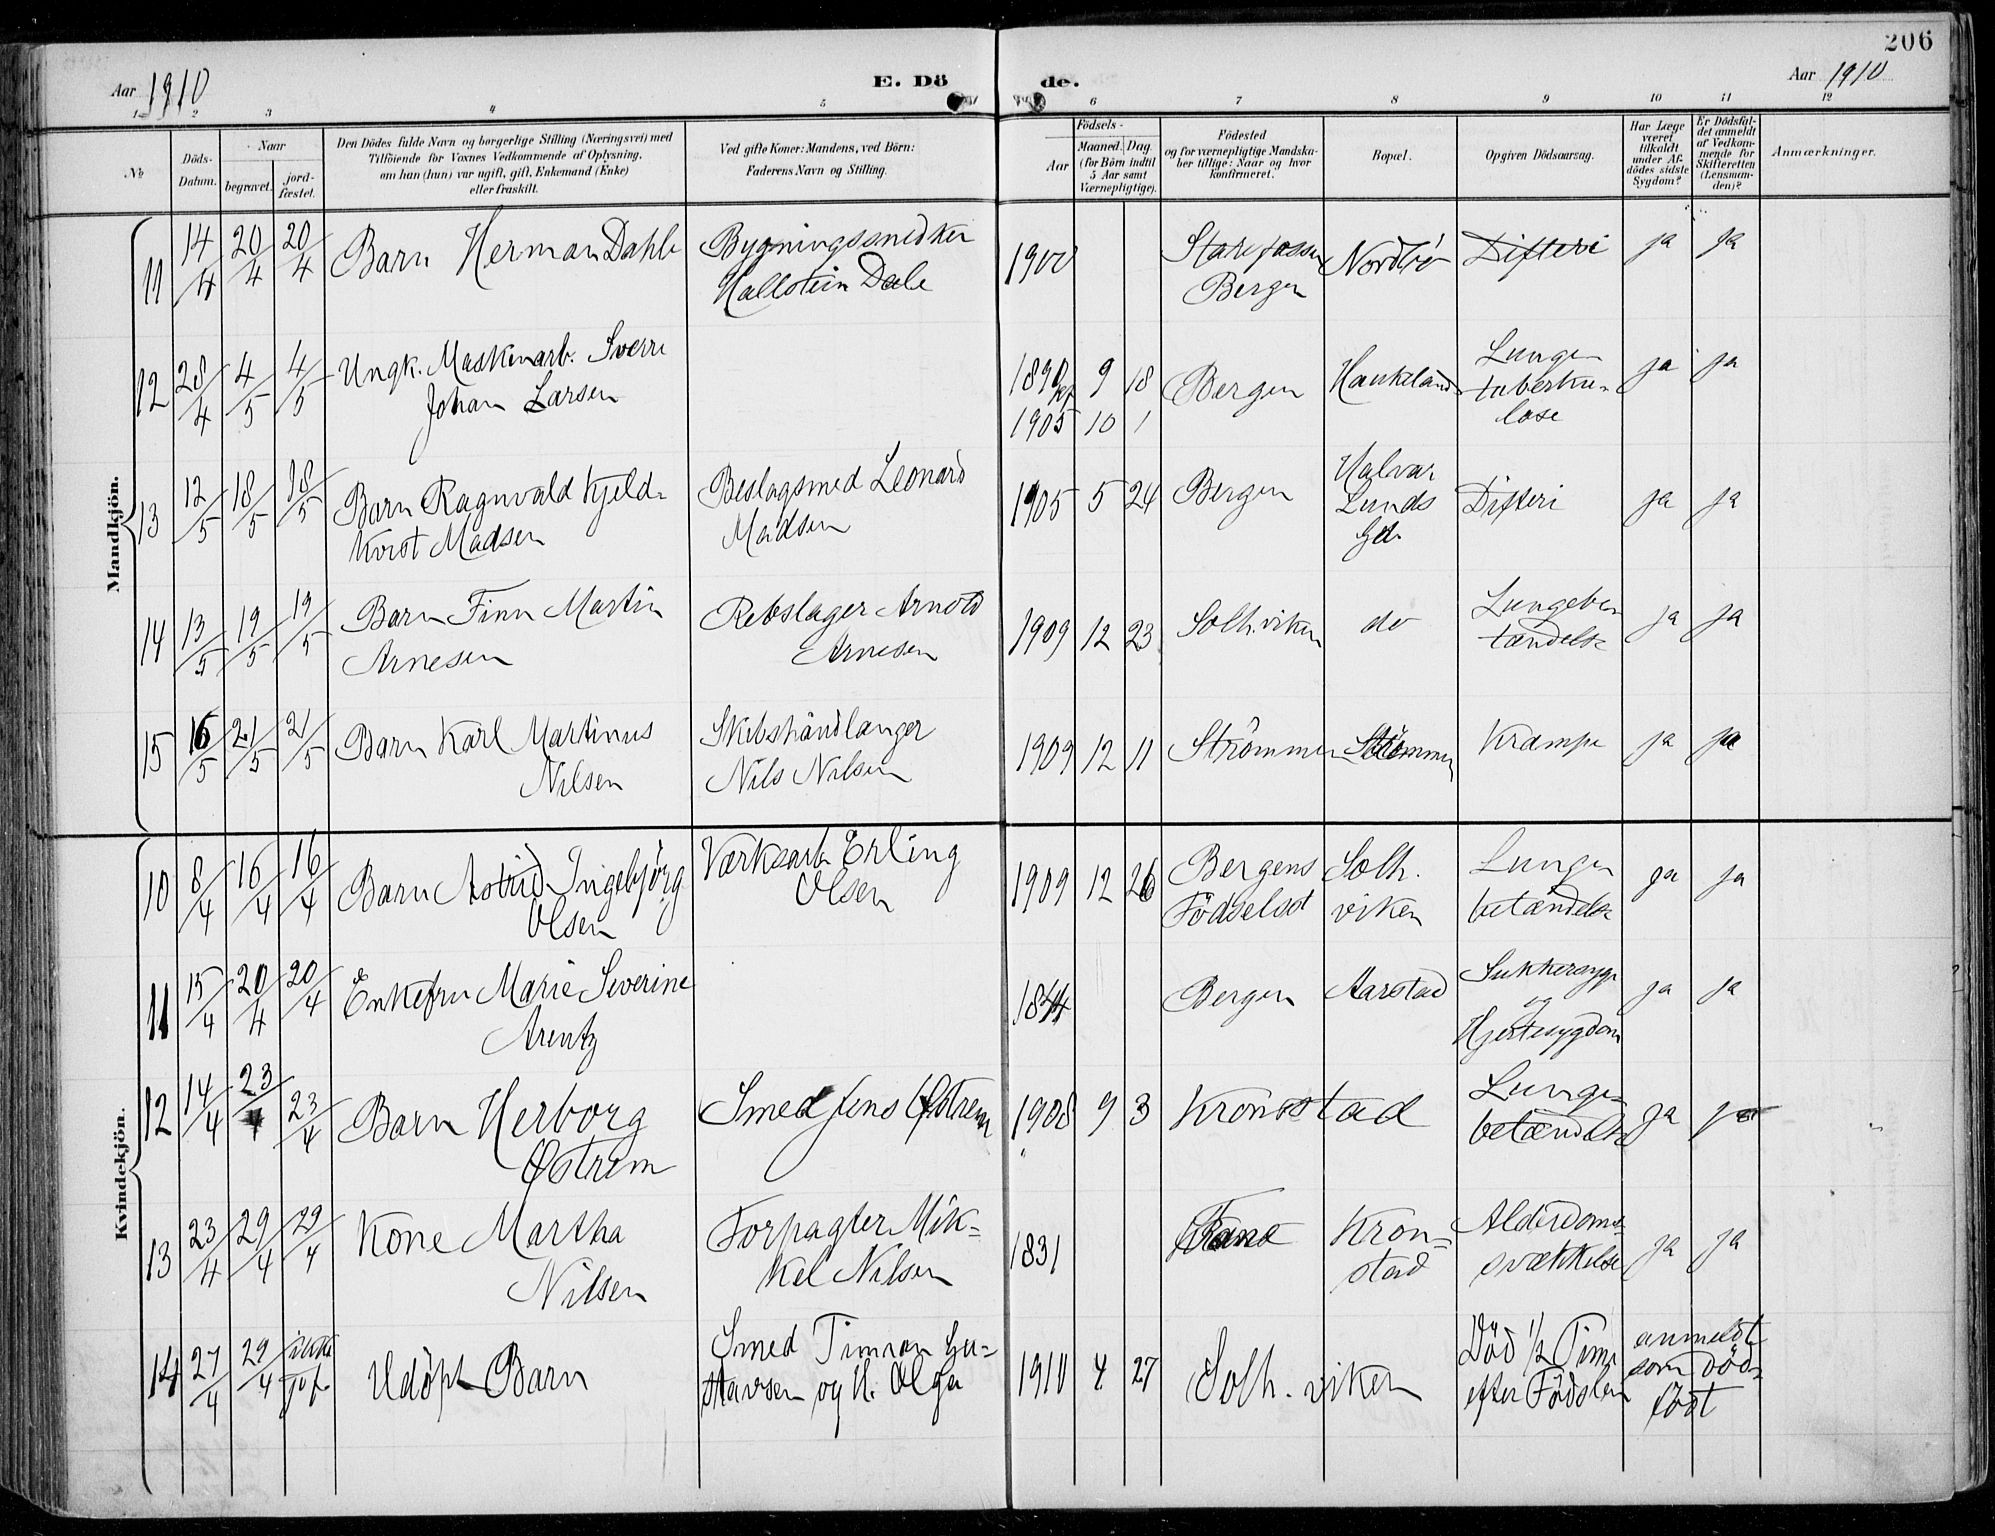 206
Aar 1910
E. Dö
de.
Aar 1910
1 2 3 4 5 6 7 8 9 10 11 12
No
Döds-
Datum.
Naar
begravet.
jord-
fæstet.
Den Dödes fulde Navn og borgerlige Stilling (Næringsvei) med
Tilföiende for Voxnes Vedkommende af Oplysning,
om han (hun) var ugift, gift, Enkemand (Enke)
eller fraskilt.
Ved gifte Koner: Mandens, ved Börn:
Faderens Navn og Stilling.
Födsels-
Aar
Maaned. Dag.
(for Börn indtil
5 Aar samt
Værnepligtige).
Födested
og for værnepligtige Mandska-
ber tillige: Naar og hvor
konfirmeret.
Bopæl.
Opgiven Dödsaarsag.
Har Læge
været
tilkaldt
under Af-
dödes sidste
Sygdom?
Er Dödsfal-
det anmeldt
af Vedkom-
mende for
Skifteretten
(Lensman-
den)?
Anmærkninger.
Mandkjön.
11 14/4 20/4 20/4 Barn Herman Dahle
Bygningssnedker
Hallstein Dale
1900
Bergen
Nordbö Difteri ja ja
12 28/4 4/5 4/5 Ungk. Maskinarb. Sverre
Johan Larsen
1890 9 18
kf
1905 10 1
Bergen Haukeland
Lunge
tuberku-
lose
ja ja
13 12/5 18/5 18/5 Barn Ragnvald Kjeld-
Kvist Madsen
Beslagsmed Leonard
Madsen
1905 5 24 Bergen
Halvar
Lunds
Gd.
Difteri ja ja
14 13/5 19/5 19/5 Barn Finn Martin
Arnesen
Rebslager Arnold
Arnesen
1909 12 23 Solh.viken do
Lungebe-
tændelse
ja ja
15 16/5 21/5 21/5 Barn Karl Martinus
Nilsen
Skibshåndlanger
Nils Nilsen
1909 12 11 Strömmen Strömmen Krampe ja ja
Kvindekjön.
10 8/4 16/4 16/4 Barn Astrid Ingebjörg
Olsen
Værksarb. Erling
Olsen
1909 12 26
Bergens
Födselsst
Solh.
viken
Lunge
betændelse
ja ja
11 15/4 20/4 20/4 Enkefru Marie Severine
Arentz
1844 Bergen Aarstad
Sukkersyge
og
Hjertesygdom
ja ja
12 14/4 23/4 23/4 Barn Herborg
Østrem
Smed Jens Østrem
1908 9 3 Kronstad
Lunge-
betændelse
ja ja
13 23/4 29/4 29/4 Kone Martha
Nilsen
Forpagter Mik-
kel Nilsen
1831
Kron-
stad
Alderdoms-
svækkelse
ja ja
14 27/4 29/4 ikke
jof.
Udöpt Barn
Smed Timran Gu-
stavsen og H. Olga
1910 4 27 Solh. viken
Död 1/2 Time
efter Födslen
anmeldt
som död-
födt